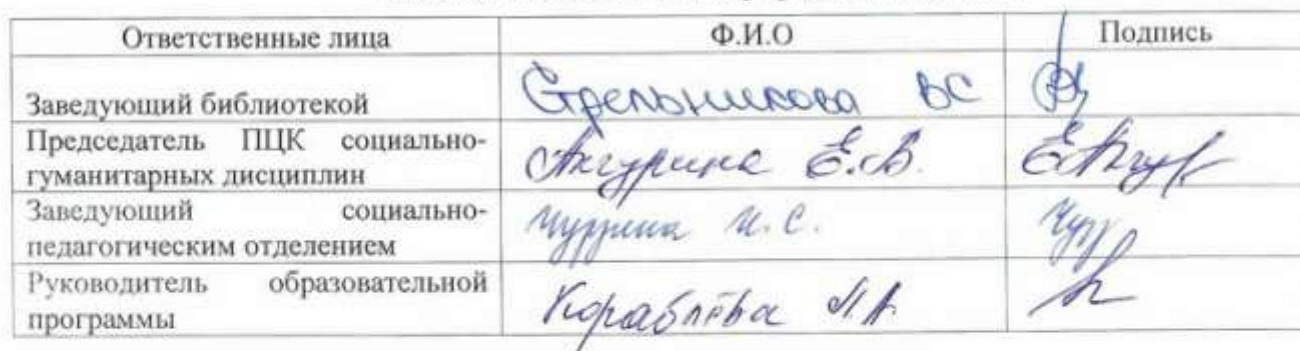 Ответственные лица Ф.И.О Подпись
Заведующий библиотекой Стрельникова ВС
Председатель ПЦК социально-
гуманитарных дисциплин Ажгурина Е.В.
Заведующий социально-
педагогическим отделением И.С.
Руководитель образовательной
программы Кораблёва